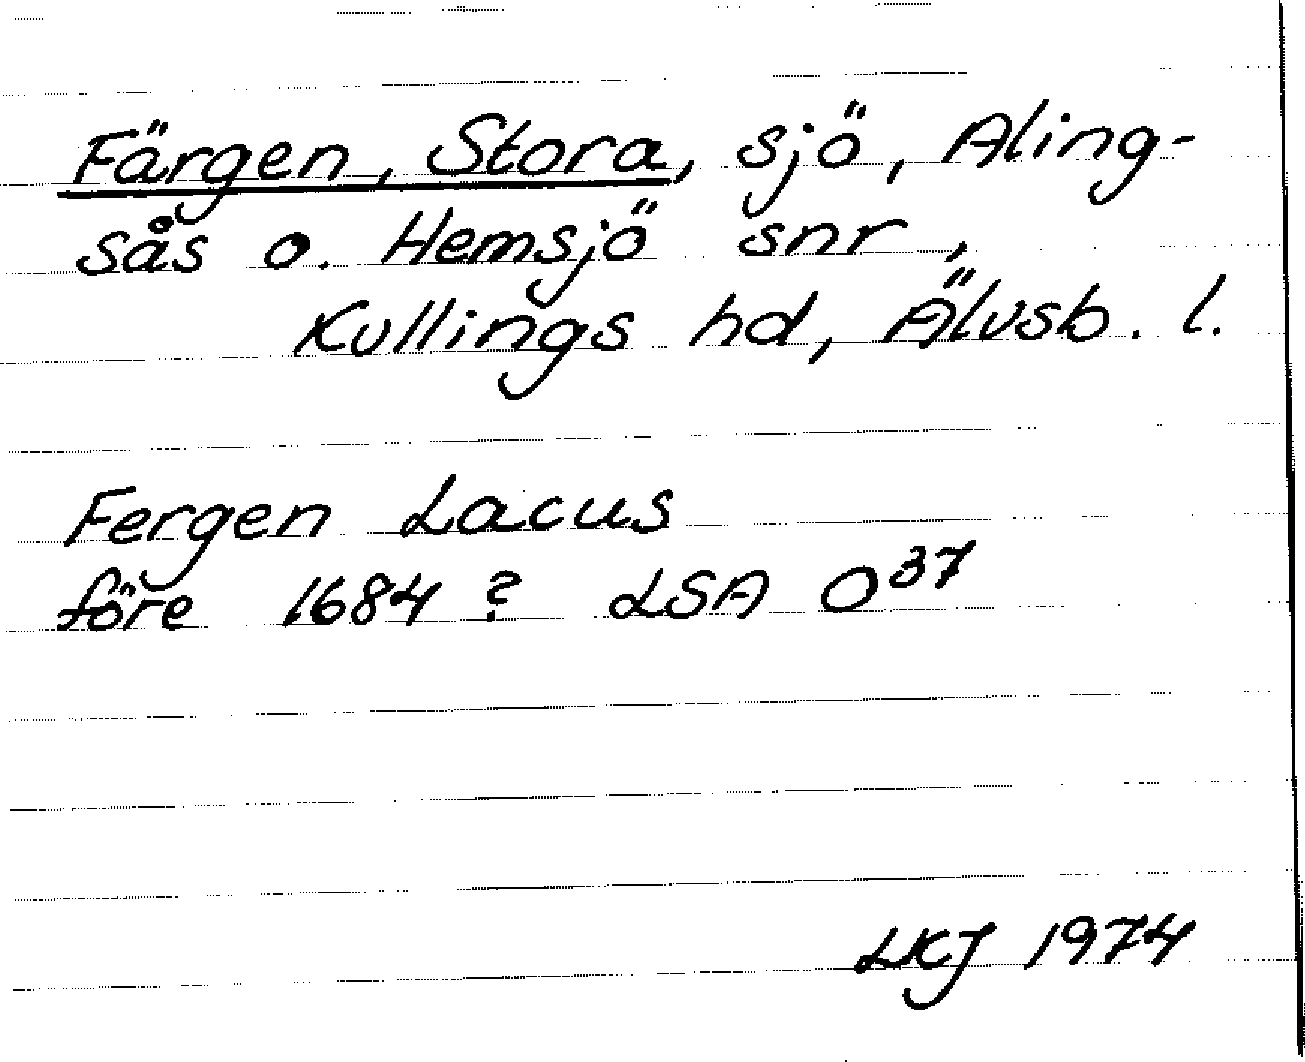 Färgen, Stora, sjö, Aling-
sås o. Hemsjö snr,
Kullings hd, Älvsb. l.
Fergen Lacus
före 1684? LSA O³⁷
LKJ 1974